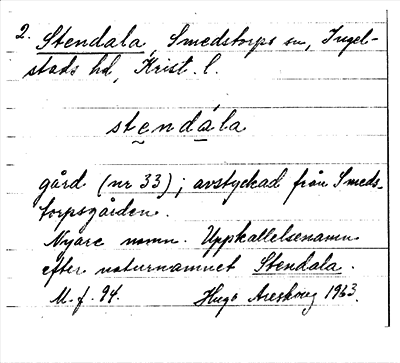 2. Stendala, Smedstorps sn, Ingel-
stads hd, Krist. l.
stendála
gård (nr 33); avstyckad från Smeds-
torpsgården.
Nyare namn. Uppkallelsenamn
efter naturnamnet Stendala.
M. f. 94. Hugo Areskoug 1963.